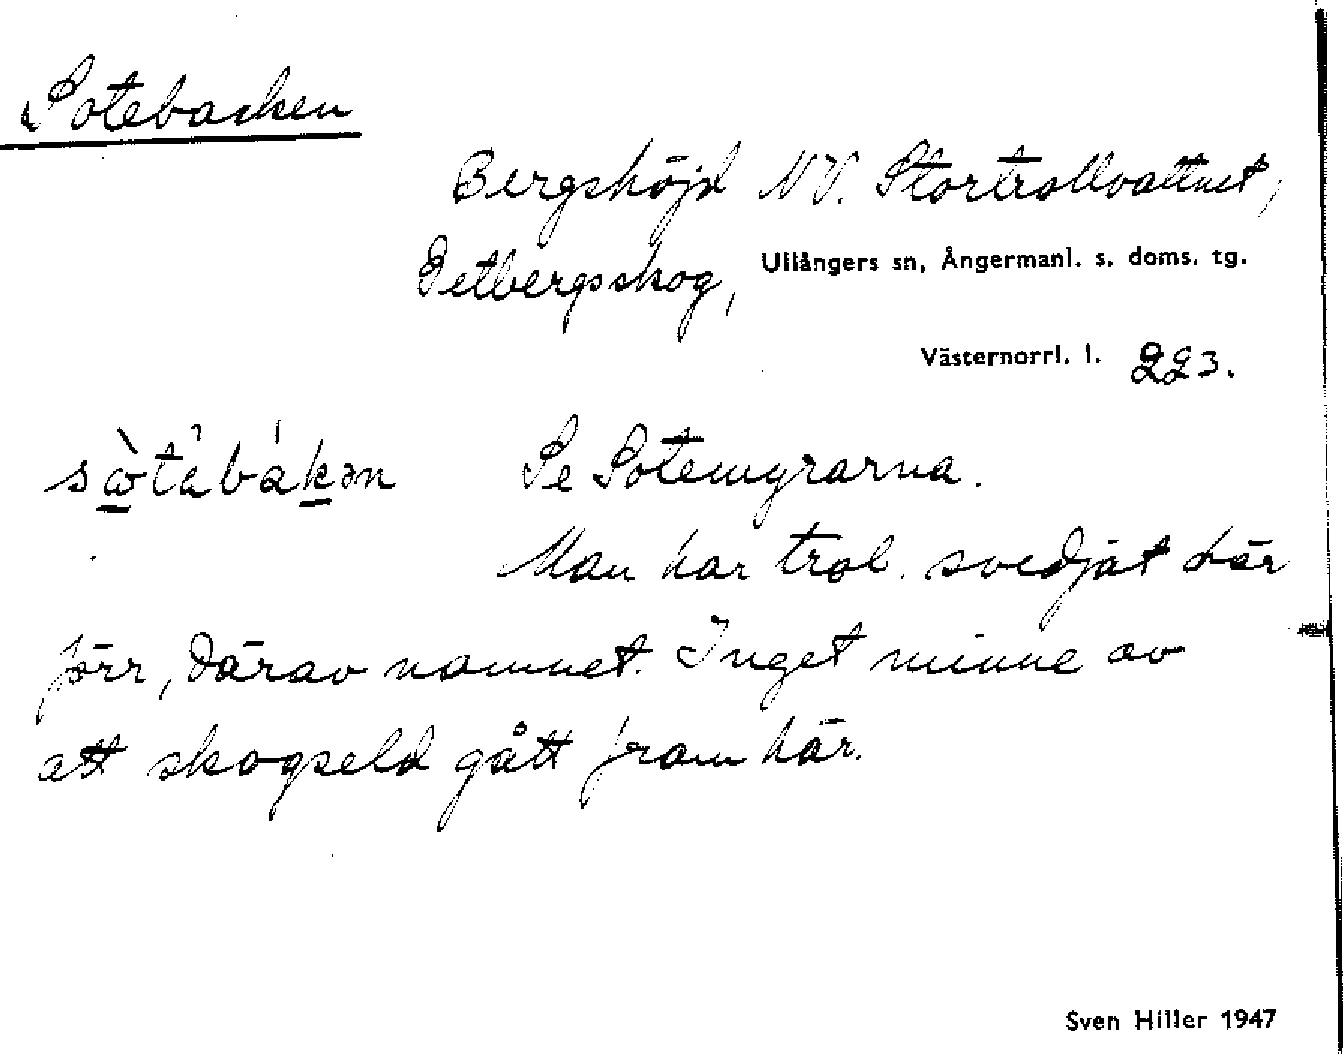 Sotebacken
Bergshöjd NV. Stortrollvattnet,
Getbergsskog, Ullångers sn, Ångermanl. s. doms. tg.
Västernorrl. l. 223.
Se Sotemyrarna.
Man har trol. svedjat här
förr, därav namnet. Inget minne av
att skogseld gått fram här.
Sven Hiller 1947